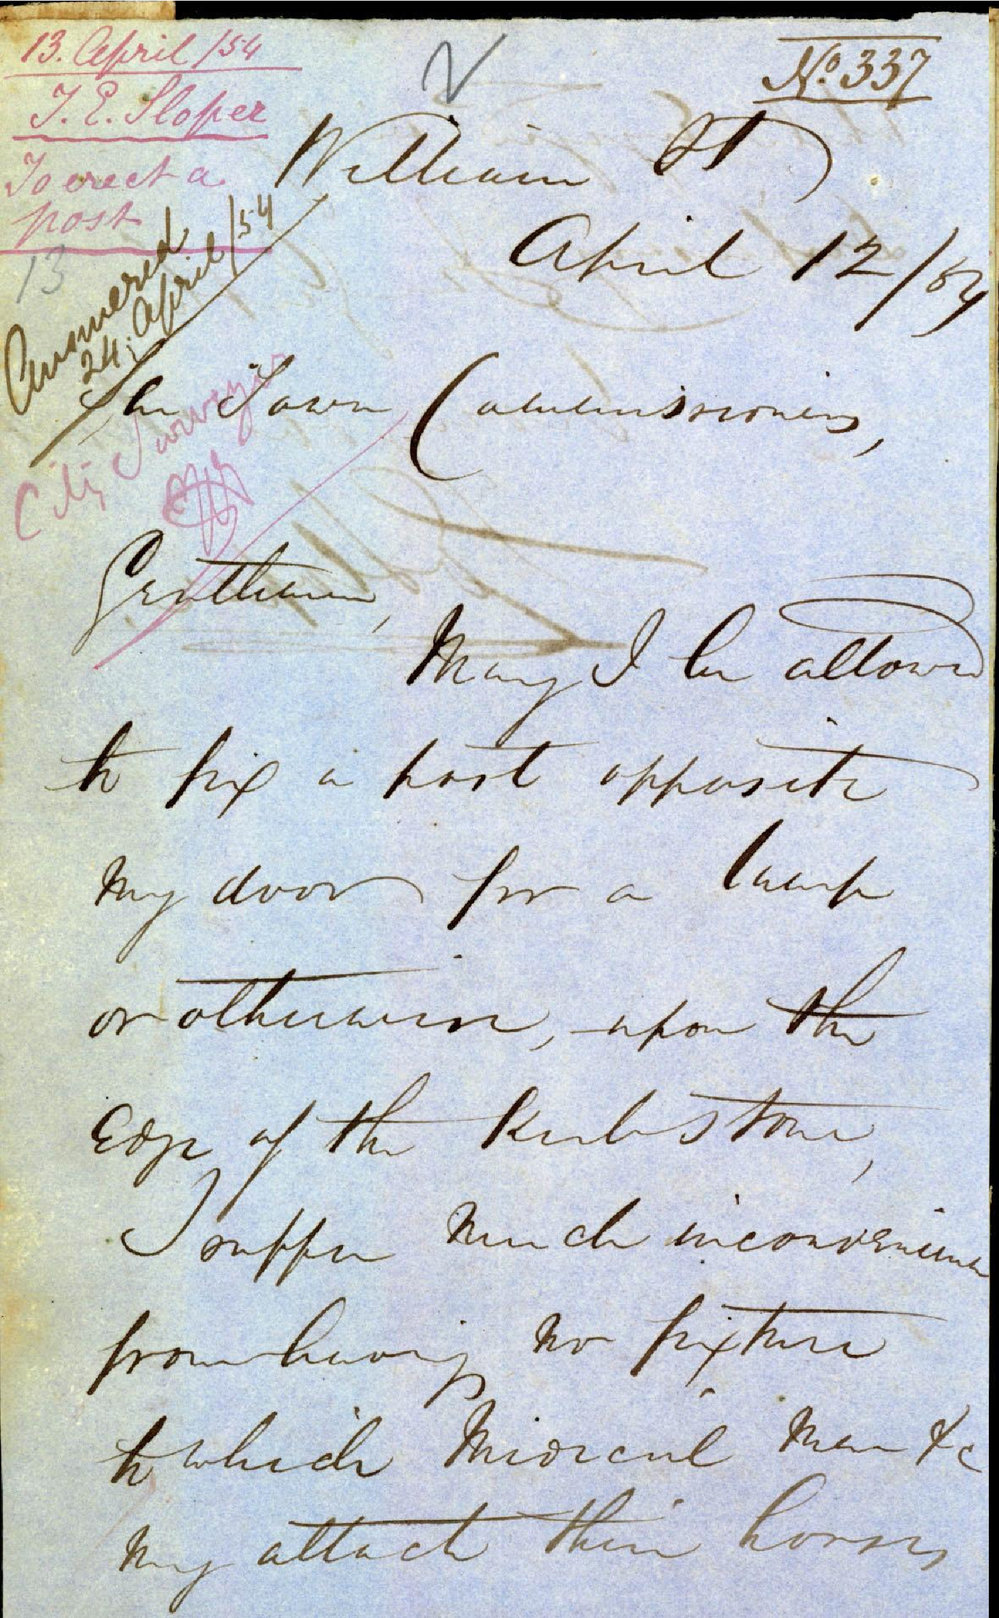 13. April /54
T. E. Sloper
To erect a
post
13
Answered
24. April /54
City Surveyor
No. 337
William St
April 12/54
The Town Commissioners,
Gentlemen,
May I be allowed
to fix a post opposite
my door for a lamp
or otherwise, upon the
Edge of the Kerbstone,
I suffer much inconvenience
from having no fixture
to which Medical Men &c
may attach their horses